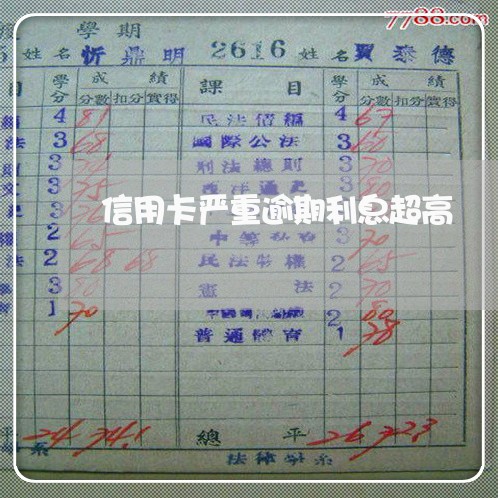 7788.com
學期
姓名 忻鼎明 2616 姓名 賈泰德
目 學分 成績 課目 學分 成績
分數 扣分 實得 分數 扣分 實得
4 81 民法債編 4 67
法 3 68 國際公法 3 60
3 刑法總則 3 70
3 75 西洋通史 3 80
信用卡严重逾期利息超高
2 65 3 70
法 2 68 68 民法物權 2 65
3 80 憲法 2 70
1 70 2 80
普通體育 1 78
平 24 74.1 總平 26 72.3
系 法律學系